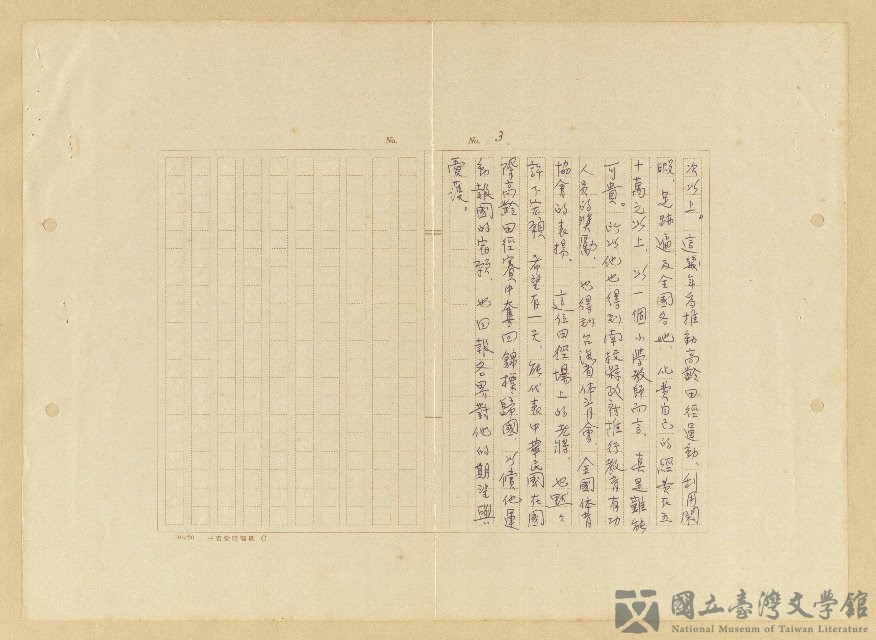 No. 3
次以上。這幾年為推動高齡田徑運動、利用閑
暇、足跡遍及全國各地、化費自己的經費在五
十萬元以上、以一個小學教師而言、真是難能
可貴。所以他也得到南投縣政府推行教育有功
人員的獎勵、也得到台灣省体育會、全國体育
協會的表揚。這位田徑場上的老將、也默々
許下宏願、希望有一天、能代表中華民國在國
際高齡田徑賽中奪回錦標歸國、以償他運
動報國的宏願、也回報各界對他的期望與
愛護。
No.
國立臺灣文學館
National Museum of Taiwan Literature